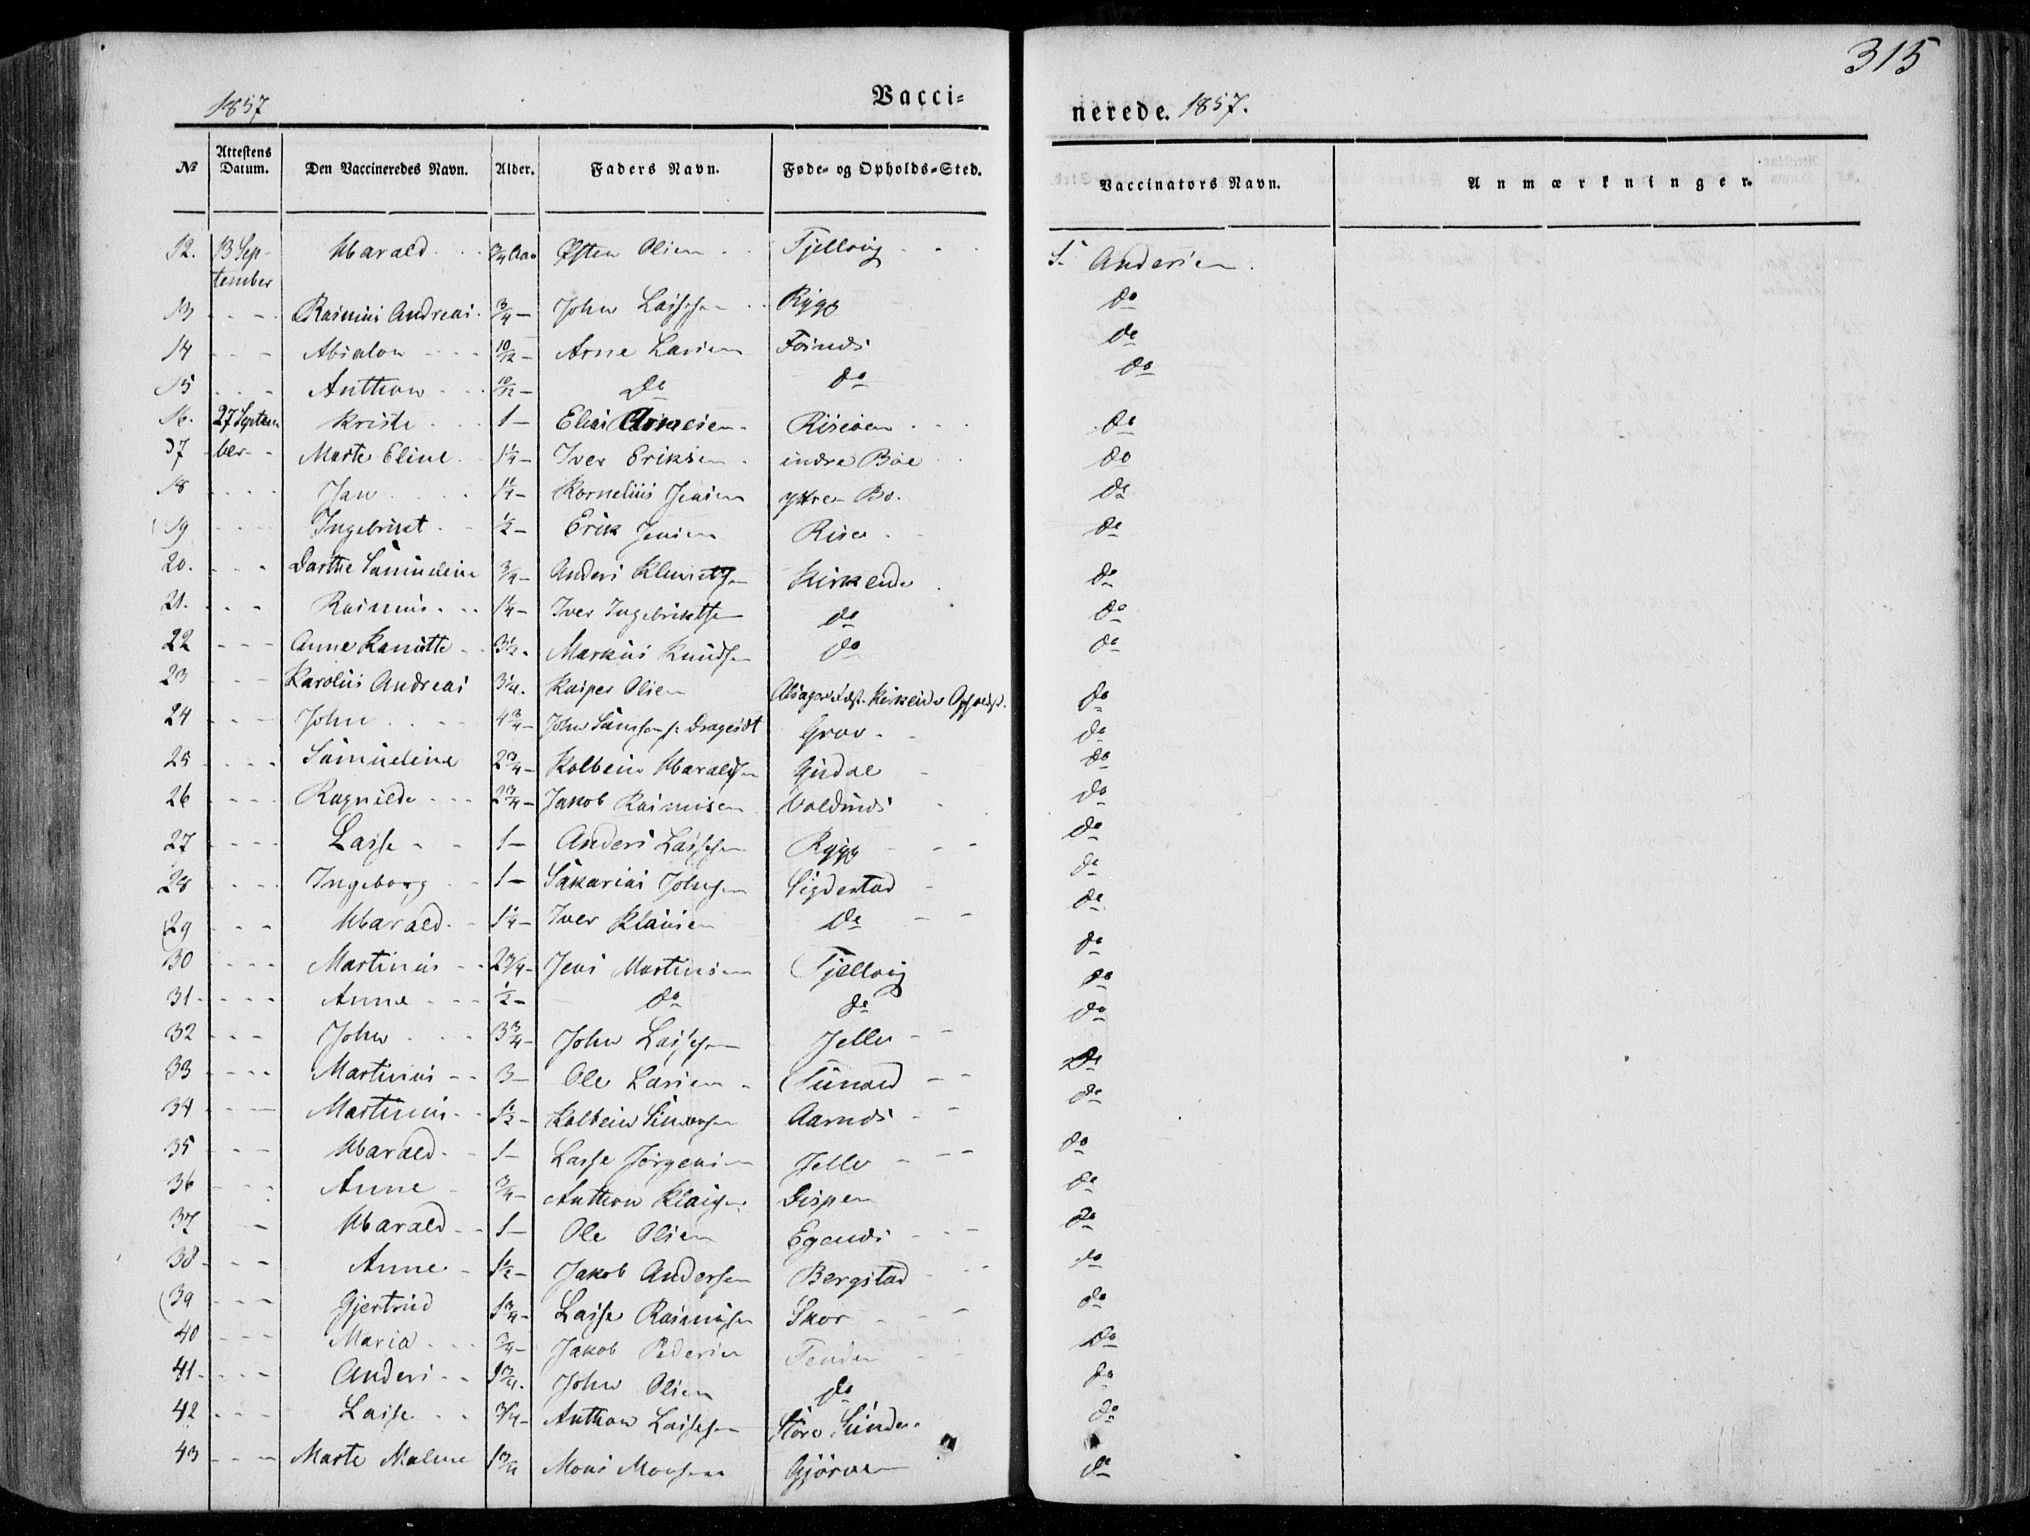 315
1857 Vacci=
nerede. 1857.
No Attestens Datum. Den Vaccineredes Navn. Alder. Faders Navn. Føde= og Opholds=Sted. Vaccinators Navn. Anmærkninger.
12. 13 Sep- Harald 3/4 Aar Østen Olsen Fjellvig S. Andersen
tember
13 Rasmus Andreas 3/4 John Lassesen Rygg do
14 Absalon 10/12 Arne Larsen Fornæs do
15 Anthon 10/12 Do do do
16. 27 Septem Kriste 1 Elias Arnesen Risøen do
17 ber Marte Eline 1 1/4 Iver Eriksen indre Bøe do
18 Jan 1 1/4 Kornelius Jensen ytre Bø do
19 Ingebrigt 1/2 Erik Jensen Rise do
20. Dorthe Samueline 3/4 Anders Klemetsen Kirkeide do
21. Rasmus 1 1/4 Iver Ingebriktsen do do
22 Anne Kanutte 3 1/2 Markus Knudsen do do
23 Karolus Andreas 3 1/4 Kasper Olsen Kirkeide do
24 John 4 3/4 John Dragesæt Grov do
25 Samueline 2 3/4 Kolbein Haraldsen Gjidal do
26 Ragnilde 2 3/4 Jakob Rasmusen Voldnæs do
27 Lasse 1 Anders Lassesen Rygg do
28 Ingeborg 1 Sakarias Johnsen Sigdestad do
29 Harald 1 1/4 Iver Klausen Do do
30 Martinus 2 3/4 Jens Martinusen Fjellvig do
31 Anne 1/2 do do do
32 John 3 3/4 John Lassesen Jelle do
33 Martinus 3 Ole Larsen do
34 Martinus 1 1/2 Kolbein Simonsen Aarnæs do
35 Harald 1 Lasse Jørgensen Jelle do
36 Anne 3/4 Anthon Klausen Dispen do
37 Harald 1 Ole Olsen Egenæs do
38 Anne 1 1/2 Jakob Andersen Bergstad do
39 Gjertrud 1 3/4 Lasse Rasmusen Skor do
40 Maria 3/4 Jakob Pedersen do
41 Anders 1 3/4 John Olsen do do
42 Lasse 3/4 Anthon Lassesen Store Sunde do
43 Marte Malene 1 3/4 Mons Monsen Gjørven do